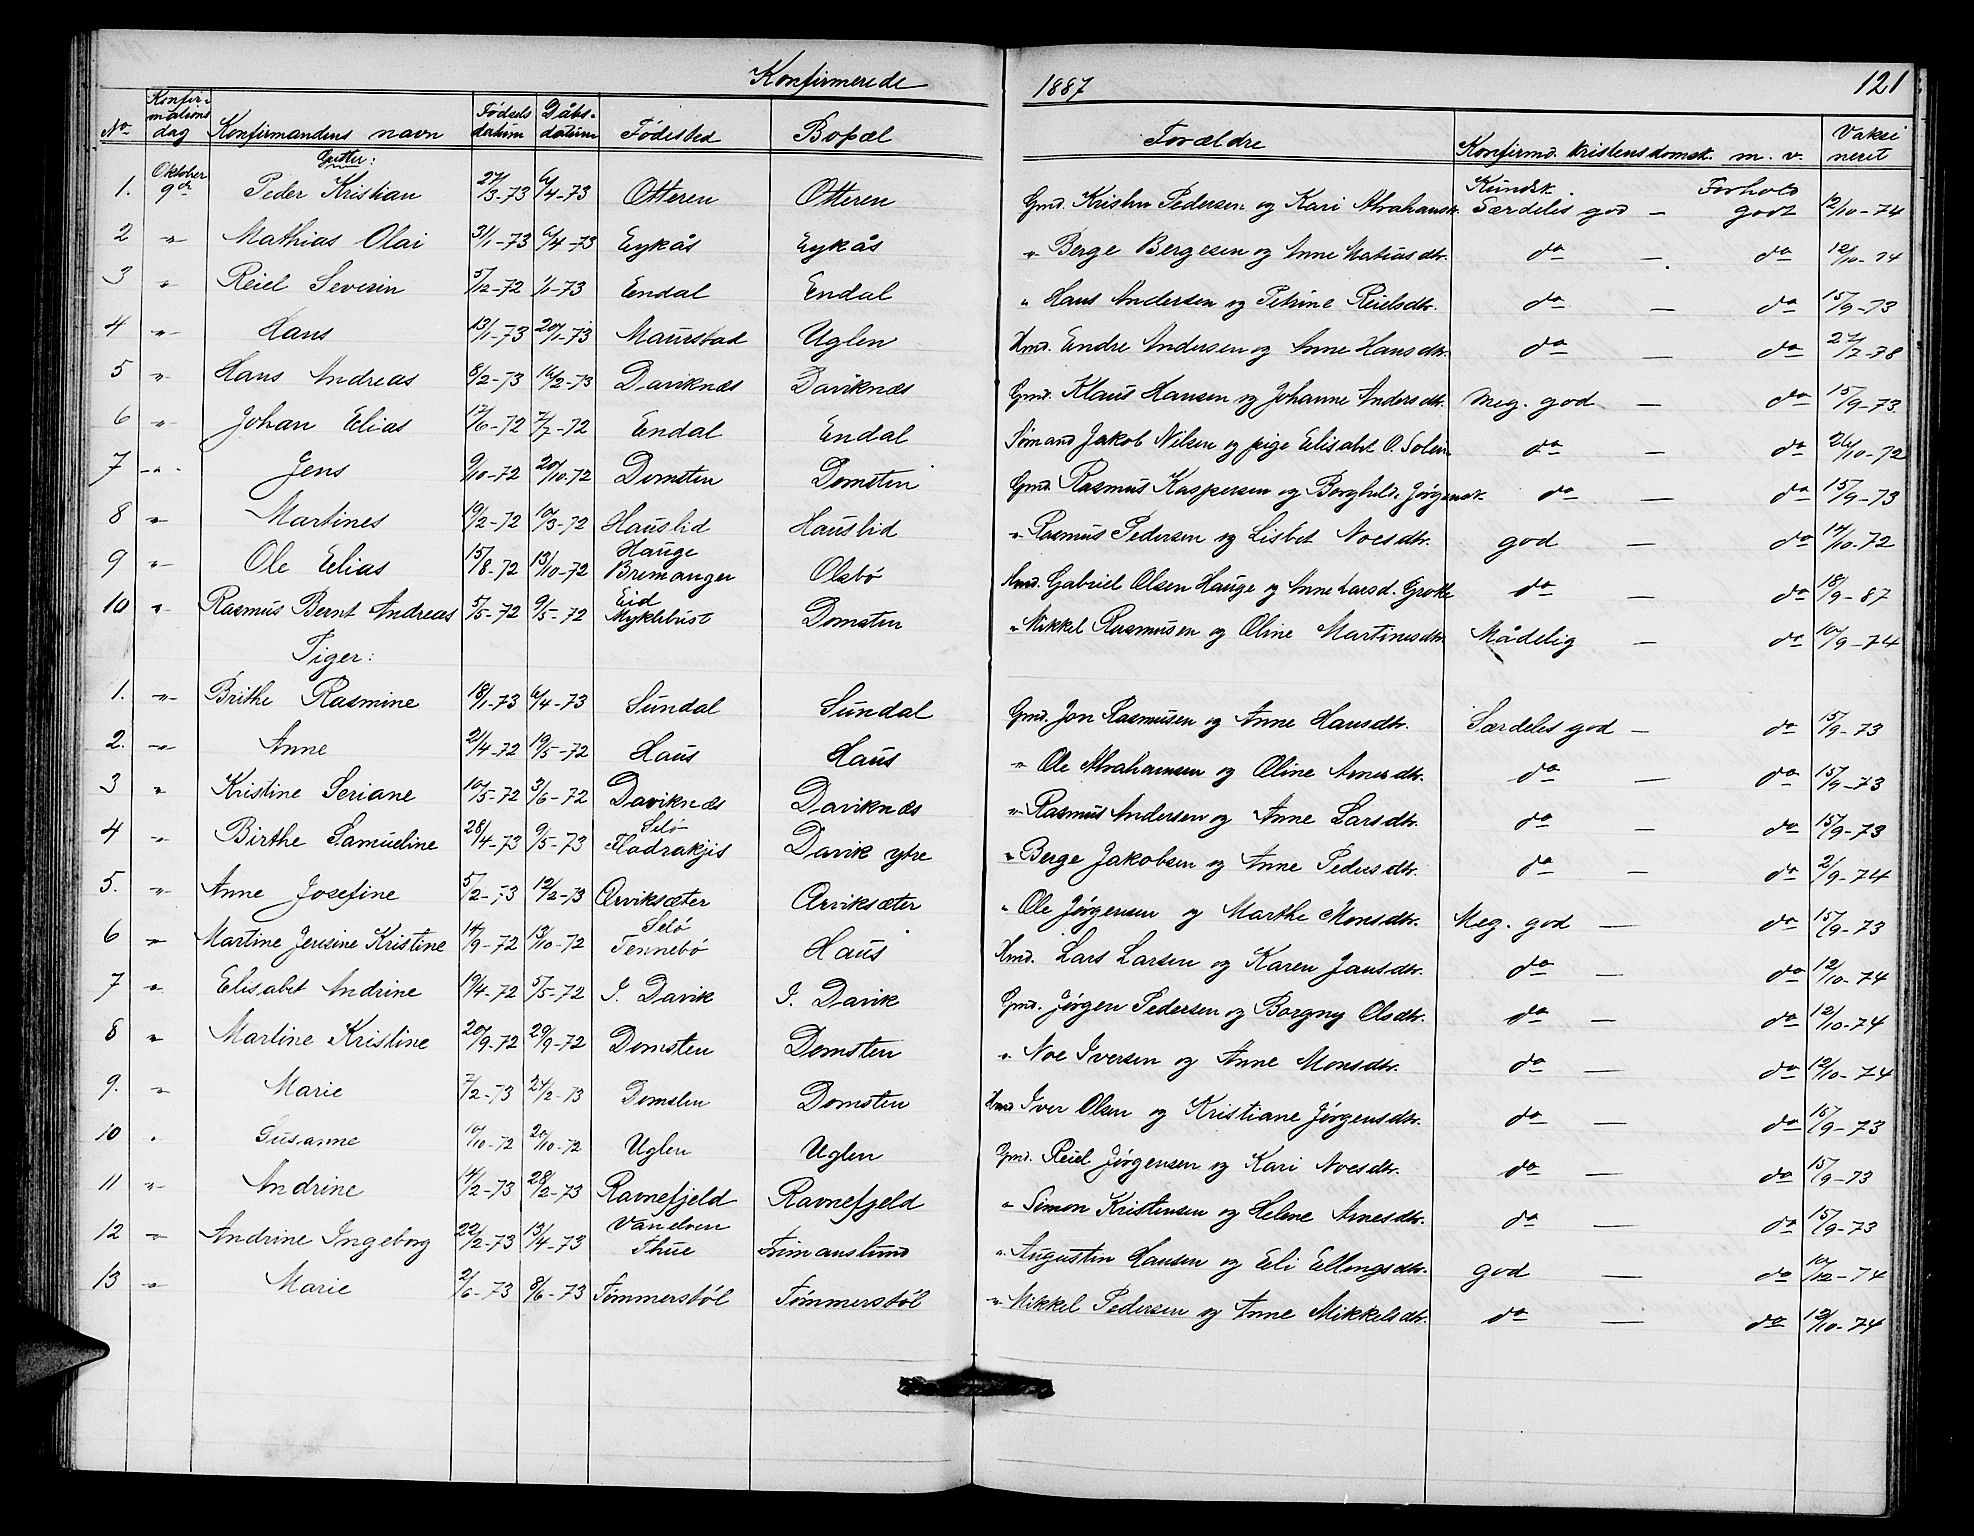 Konfirmerede 1887 121
No Konfirmations dag Konfirmandens navn Fødsels datum Dåbs-datum Fødested Bopæl Forældre Konfirmd. kristensdomsk. m. v. Vaksineret
Gutter: Kundsk. Forhold
1. Oktober 9de Peder Kristian 27/3-73 6/4-73 Otteren Otteren Gmd. Kristen Pedersen og Kari Abrahamsd. Særdeles god - godt 12/10-74
2 " Mathias Olai 31/1-73 6/4-73 Eykås Eykås " Berge Bergesen og Anne Matiasdtr. do - do 12/10-74
3 " Reiel Severin 5/12-72 1/1-73 Endal Endal " Hans Andersen og Petrine Reielsdtr. do - do 15/9-73
4 " Hans 13/1-73 20/1-73 Maurstad Uglen Hmd. Endre Andersen og Anne Hansdtr. do - do 27/7-78
5 " Hans Andreas 8/2-73 16/2-73 Daviknæs Daviknæs Gmd. Klaus Hansen og Johanne Andersdtr. Meg. god - do 15/9-73
6 " Johan Elias 17/6-72 7/7-72 Endal Endal Sømand Jakob Nilsen og pige Elisabet O. Solem do - do 26/10-72
7 " Jens 9/10-72 20/10-72 Domsten Domsten Gmd. Rasmus Kaspersen og Borghild Jørgensd. do - do 15/9-73
8 " Martines 19/2-72 10/3-72 Hauslid Hauslid " Rasmus Pedersen og Lisbet Noesdtr. god - do 14/10-72
9 " Ole Elias 15/8-72 13/10-72 Hauge Bremanger Olsbö Hmd. Gabriel Olsen Hauge og Anne Larsd. Grotle do - do 18/9-87
10 " Rasmus Bernt Andreas 5/5-72 9/5-72 Eid Myklebust Domsten " Mikkel Rasmusen og Oline Martinusdtr. Mådelig - do 10/9-74
Piger:
1. " Brithe Rasmine 18/1-73 6/4-73 Sundal Sundal Gmd. Jon Rasmusen og Anne Hansdtr. Særdeles god - do 15/9-73
2. " Anne 21/4-72 19/5-72 Haus Haus " Ole Abrahamsen og Oline Arnesdtr. do - do 15/9-73
3 " Kristine Seriane 10/5-72 3/6-72 Daviknæs Daviknæs " Rasmus Andersen og Anne Larsdtr. do - do 15/9-73
4 " Birthe Samueline 28/4-73 9/5-73 Selö Davik ytre " Berge Jakobsen og Anne Pedersdtr. do - do 2/9-74
5. " Anne Josefine 5/2-73 12/2-73 Arviksæter Arviksæter " Ole Jørgensen og Marthe Monsdtr. Meg. god - do 15/9-73
6 " Martine Jensine Kristine 14/9-72 13/10-72 Selö Tennebö Haus Hmd. Lars Larsen og Karen Jansdtr. do - do 12/10-74
7 " Elisabet Andrine 19/4-72 5/5-72 I. Davik I. Davik Gmd. Jørgen Pedersen og Borgny Olsdtr. do - do 12/10-74
8 " Martine Kristine 20/9-72 29/9-72 Domsten Domsten " Noe Iversen og Anne Monsdtr. do - do 12/10-74
9. " Marie 7/2-73 24/2-73 Domsten Domsten Hmd Iver Olsen og Kristiane Jørgensdtr. do - do 15/9-73
10 " Susanne 10/10-72 20/10-72 Uglen Uglen Gmd. Reiel Jørgensen og Kari Noesdtr. do - do 15/9-73
11 " Andrine 14/2-73 28/2-73 Ravnefjeld Ravnefjeld " Simon Kristensen og Helene Arnesdtr. do - do 15/9-73
12 " Andrine Ingeborg 22/2-73 13/14-73 Vanelven Thue Frimanslund " Augustin Hansen og Eli Ellingsdtr. god - do 10/12-74
13 " Marie 2/6-73 8/6-73 Tømmerstöl Tømmerstöl " Mikkel Pedersen og Anne Mikkelsdtr. do - do 12/10-74